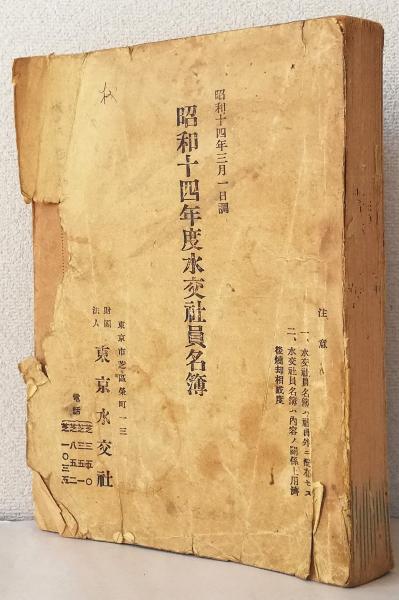 注意
一、水交社員名簿ハ社員外ニ配布セズ
二、水交社員名簿ハ内容ノ關係上用濟
後燒却相成度
昭和十四年三月一日調
昭和十四年度水交社員名簿
東京市芝區榮町一三
財團
法人
東京水交社
電話
芝三五〇
芝三五一
芝八五二
芝一〇三五